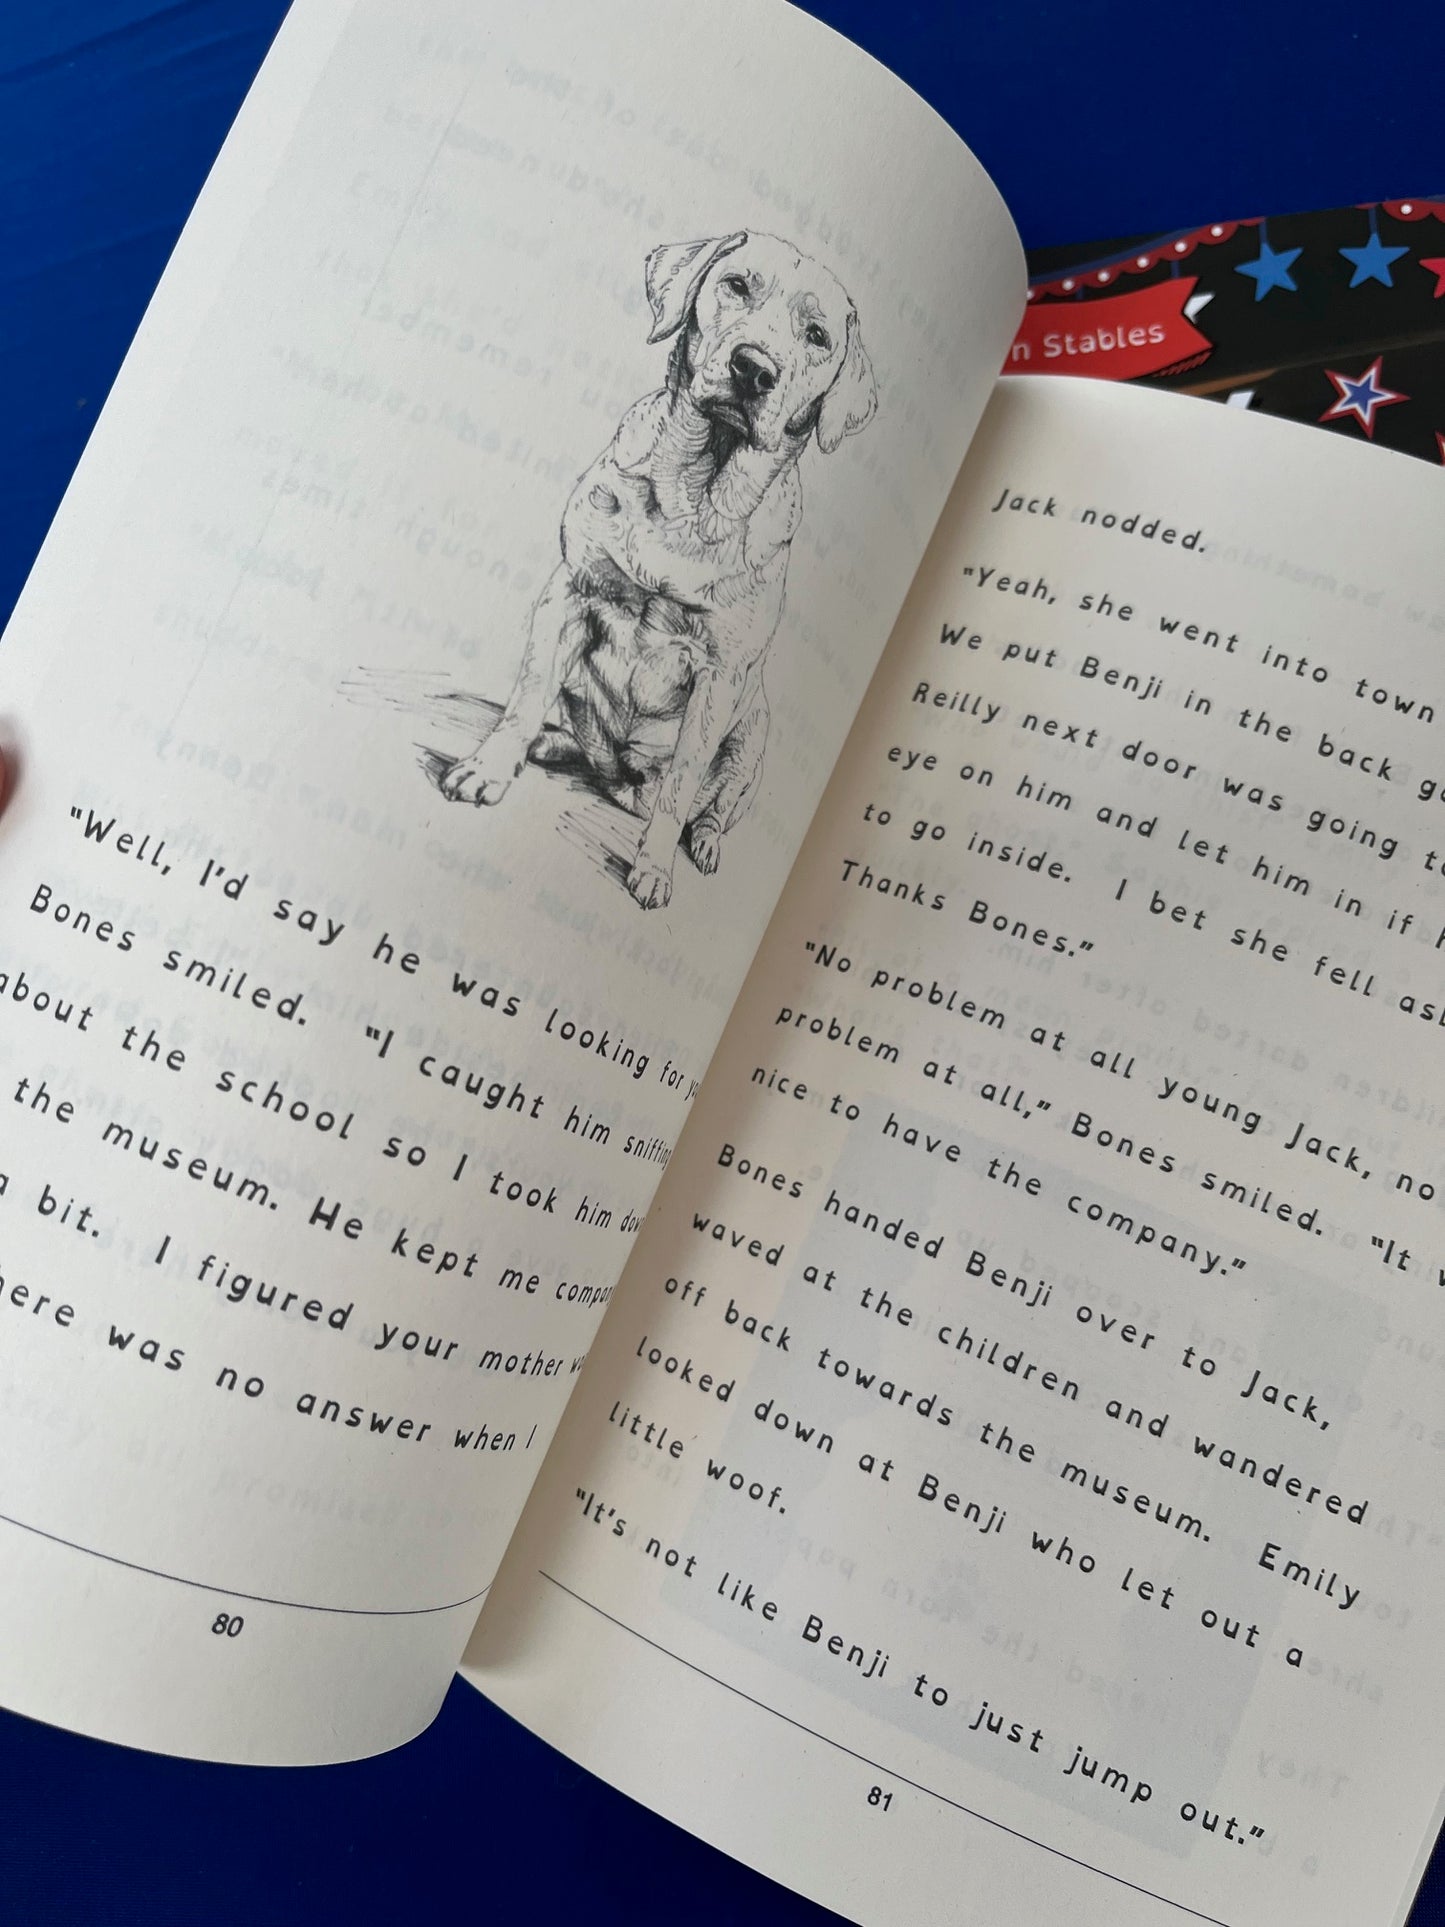 "Well, I'd say he was looking for
Bones smiled. "I caught him sniffing
about the school so I took him
the museum. He kept me
a bit. I figured your mother
was no answer when I
80
Jack nodded.
"Yeah, she went into town
We put Benji in the back
Reilly next door was going
eye on him and let him in if
to go inside. I bet she fell
Thanks Bones."
"No problem at all young Jack, no
problem at all," Bones smiled. "It
nice to have the company."
Bones handed Benji over to Jack,
waved at the children and wandered
off back towards the museum. Emily
looked down at Benji who let out a
little woof.
"It's not like Benji to just jump out."
81
Stables